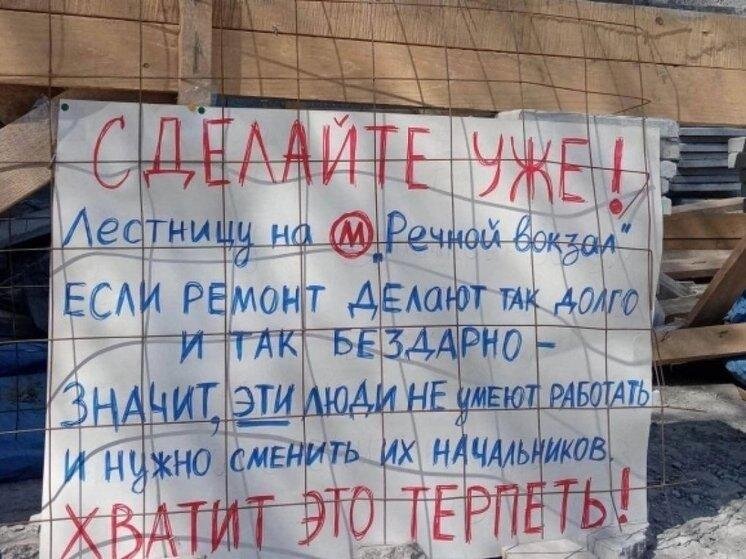 СДЕЛАЙТЕ УЖЕ!
Лестницу на М „Речной вокзал"
ЕСЛИ РЕМОНТ ДЕЛАЮТ ТАК ДОЛГО
И ТАК БЕЗДАРНО –
ЗНАЧИТ, ЭТИ ЛЮДИ НЕ УМЕЮТ РАБОТАТЬ
И НУЖНО СМЕНИТЬ ИХ НАЧАЛЬНИКОВ.
ХВАТИТ ЭТО ТЕРПЕТЬ!